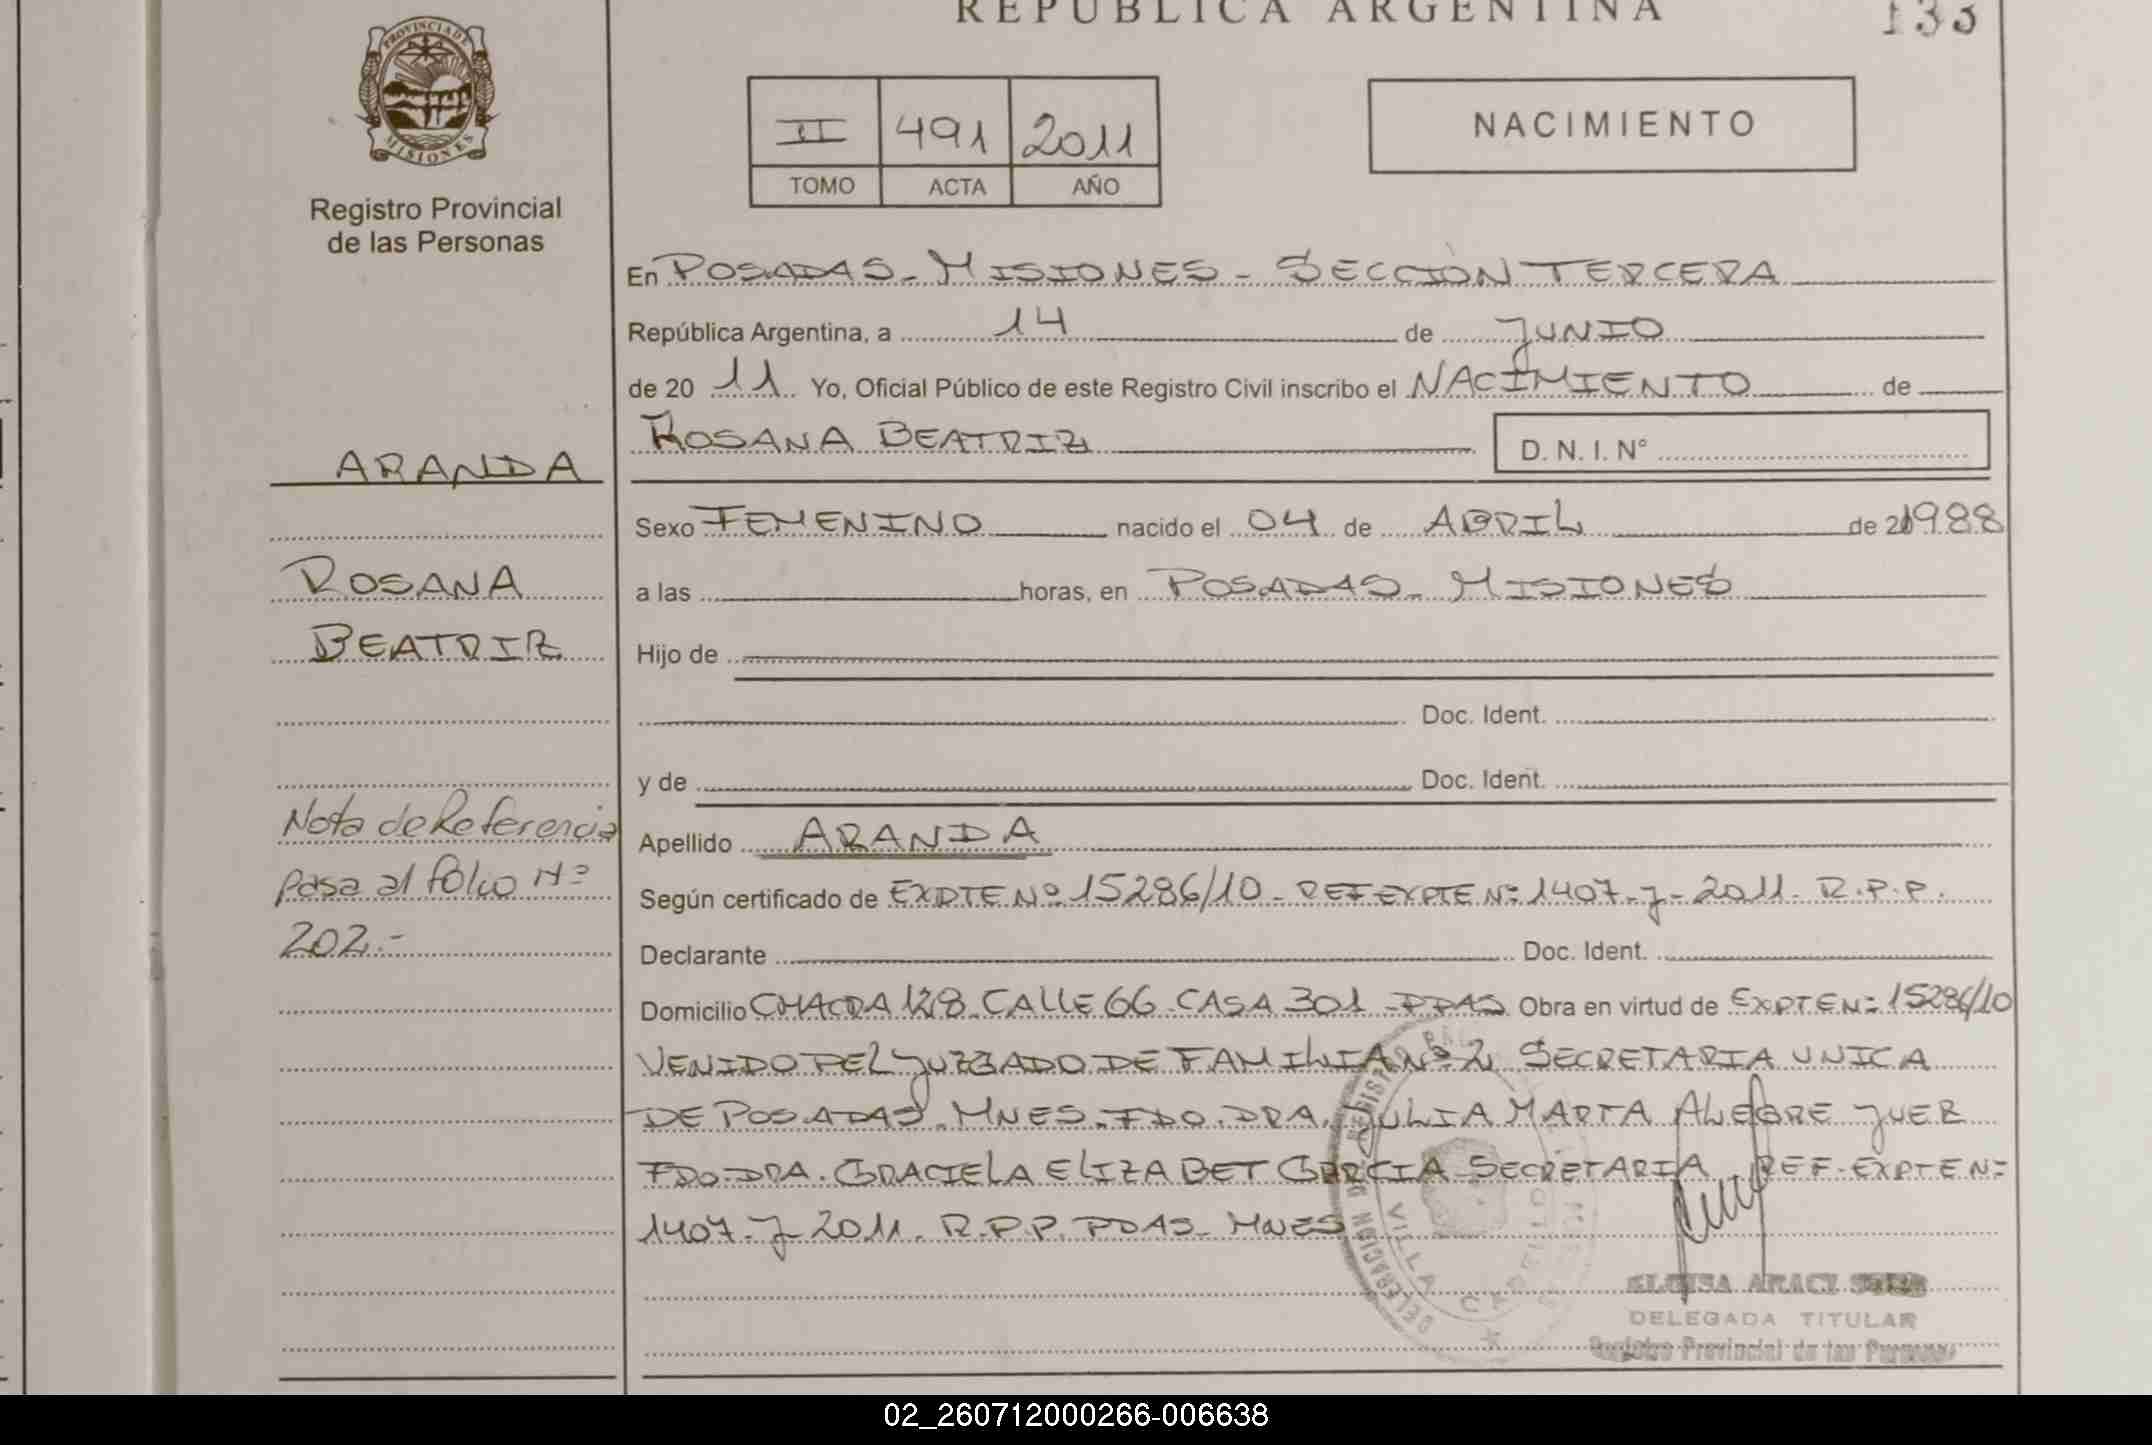 REPUBLICA ARGENTINA
133
PROVINCIA DE MISIONES
Registro Provincial
de las Personas
II 491 2011
TOMO ACTA AÑO
NACIMIENTO
En POSADAS - MISIONES - SECCIÓN TERCERA
República Argentina, a 14 de JUNIO
de 20 11 Yo, Oficial Público de este Registro Civil inscribo el NACIMIENTO de
ROSANA BEATRIZ
D. N. I. N°
ARANDA
ROSANA
BEATRIZ
Sexo FEMENINO nacido el 04 de ABRIL de 1988
a las horas, en POSADAS - MISIONES
Hijo de
Doc. Ident.
y de Doc. Ident.
Nota de Referencia
pasa al folio Nº
202.-
Apellido ARANDA
Según certificado de EXPTE Nº 15286/10 - REF EXPTE Nº 1407-J-2011- R.P.P.
Declarante Doc. Ident.
Domicilio CHACRA 128 CALLE 66 CASA 301 - PDAS Obra en virtud de EXPTE Nº 15286/10
VENIDO DEL JUZGADO DE FAMILIA Nº 2 SECRETARIA UNICA
DE POSADAS. MNES. FDO. DRA. JULIA MARTA ALEGRE JUEZ
FDO. DRA. GRACIELA ELIZABET GARCIA SECRETARIA REF. EXPTE Nº
1407-J-2011. R.P.P. PDAS - MNES
DELEGACION DE REGISTRO
VILLA CABELLO
DELEGADA TITULAR
Registro Provincial de las Personas
02_260712000266-006638